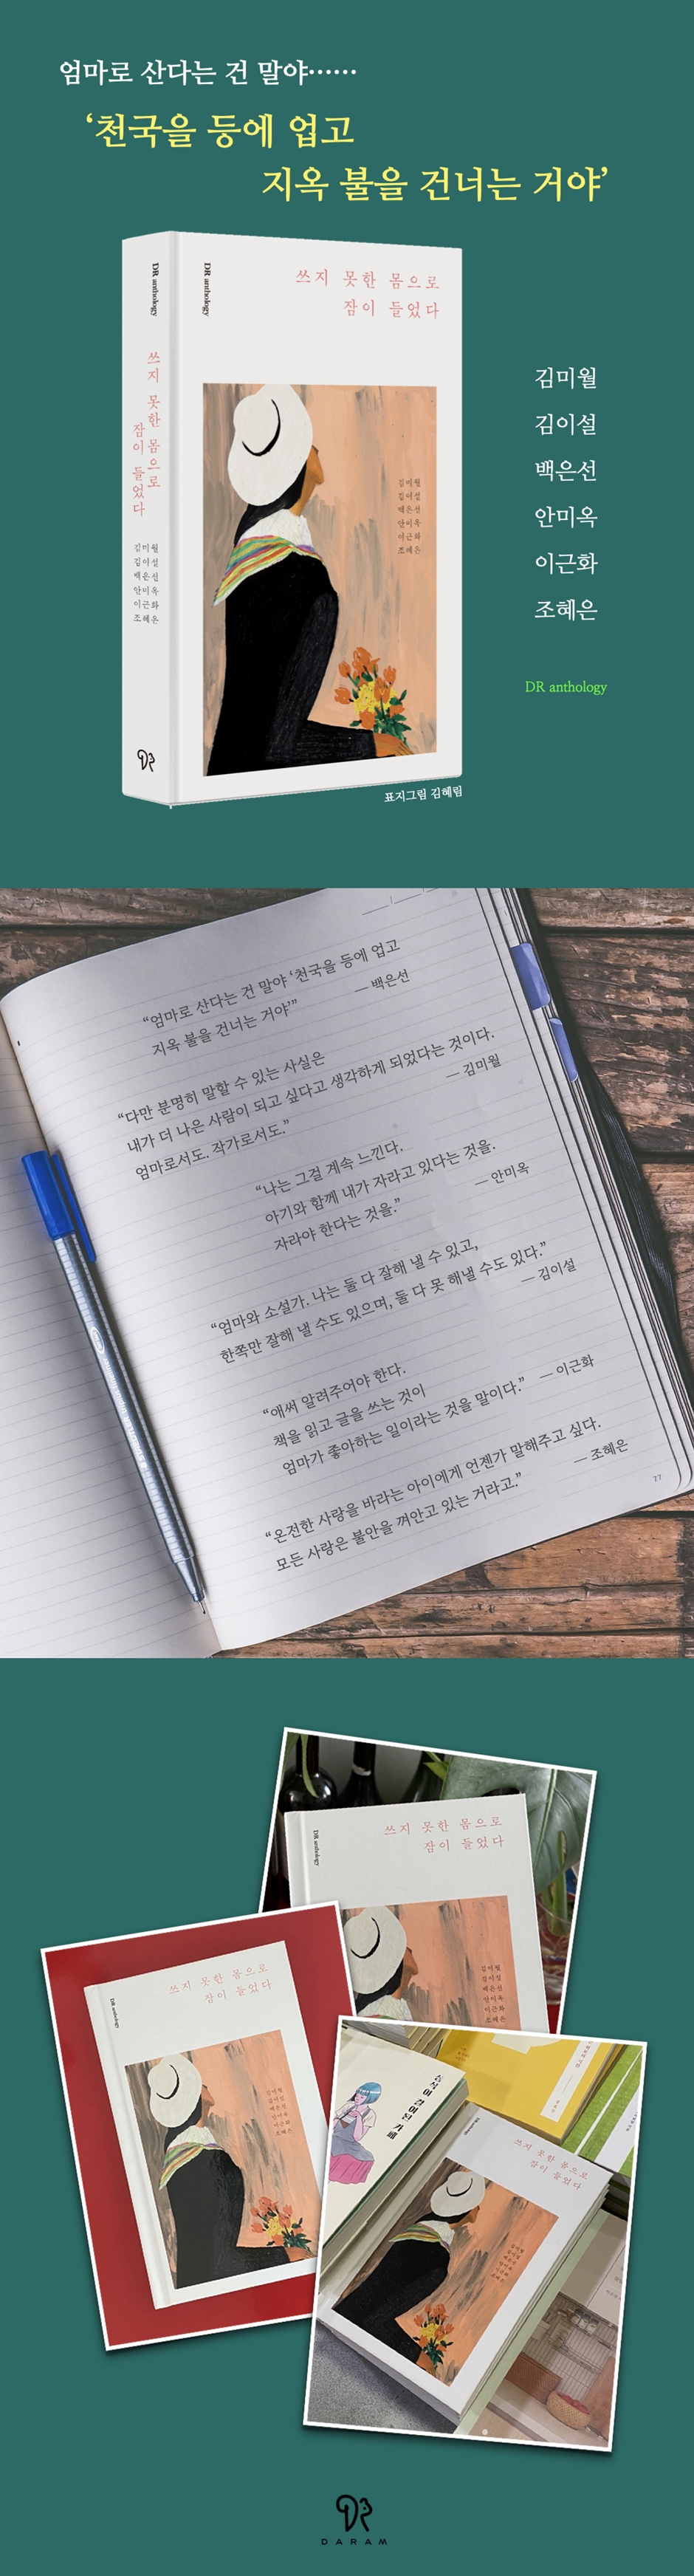 엄마로 산다는 건 말야……
‘천국을 등에 업고
지옥 불을 건너는 거야’
DR anthology
쓰지 못한 몸으로
잠이 들었다
김미월
김이설
백은선
안미옥
이근화
조혜은
DR anthology
쓰지 못한 몸으로
잠이 들었다
김미월
김이설
백은선
안미옥
이근화
조혜은
DR
김미월
김이설
백은선
안미옥
이근화
조혜은
DR anthology
표지그림 김혜림
“엄마로 산다는 건 말야 ‘천국을 등에 업고
지옥 불을 건너는 거야’”
— 백은선
“다만 분명히 말할 수 있는 사실은
내가 더 나은 사람이 되고 싶다고 생각하게 되었다는 것이다.
엄마로서도. 작가로서도.”
— 김미월
“나는 그걸 계속 느낀다.
아기와 함께 내가 자라고 있다는 것을.
자라야 한다는 것을.”
— 안미옥
“엄마와 소설가. 나는 둘 다 잘해 낼 수 있고,
한쪽만 잘해 낼 수도 있으며, 둘 다 못 해낼 수도 있다.”
— 김이설
“애써 알려주어야 한다.
책을 읽고 글을 쓰는 것이
엄마가 좋아하는 일이라는 것을 말이다.” — 이근화
“온전한 사랑을 바라는 아이에게 언젠가 말해주고 싶다.
모든 사랑은 불안을 껴안고 있는 거라고.”
— 조혜은
77
DR anthology
쓰지 못한 몸으로
잠이 들었다
김미월
김이설
백은선
안미옥
이근화
조혜은
DR anthology
쓰지 못한 몸으로
잠이 들었다
김미월
김이설
백은선
안미옥
이근화
조혜은
DR anthology
쓰지 못한 몸으로
잠이 들었다
김미월
김이설
백은선
안미옥
이근화
조혜은
DR
DARAM